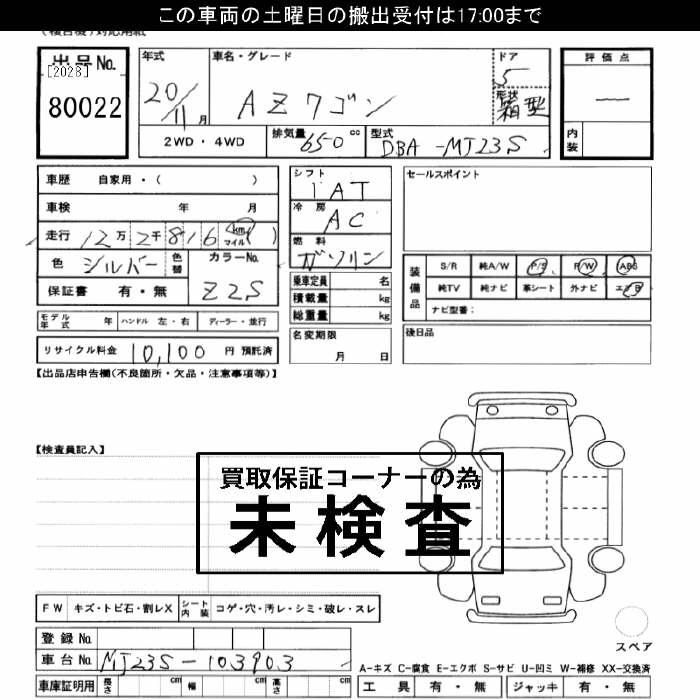 この車両の土曜日の搬出受付は17:00まで
出品No.
[2028]
80022
年式
20/11月
車名・グレード
AZワゴン
ドア
5
形状
箱型
評価点
—
内装
2WD・4WD
排気量 650 cc
型式 DBA-MJ23S
車歴 自家用・( )
車検 年 月
走行 12万2千816 (km マイル)
色 シルバー 色替
カラーNo.
Z2S
保証書 有・無
シフト
IAT
冷房
AC
燃料
ガソリン
乗車定員 名
積載量 kg
総重量 kg
セールスポイント
装備品
S/R 純A/W P/S P/W ABS
純TV 純ナビ 革シート 外ナビ エアB
ナビ型番:
モデル年式 年 ハンドル 左・右 ディーラー・並行
リサイクル料金 10,100 円 預託済
名変期限
月 日
後日品
【出品店申告欄(不良箇所・欠品・注意事項等)】
【検査員記入】
買取保証コーナーの為
未検査
FW キズ・トビ石・割レX シート内装 コゲ・穴・汚レ・シミ・破レ・スレ
登録No.
車台No. MJ23S-103903
車庫証明用 長さ cm 幅 cm 高さ cm
スペア
A-キズ C-腐食 E-エクボ S-サビ U-凹ミ W-補修 XX-交換済
工具 有・無 ジャッキ 有・無